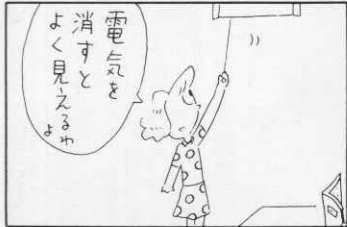 電気を
消すと
よく見えるわよ